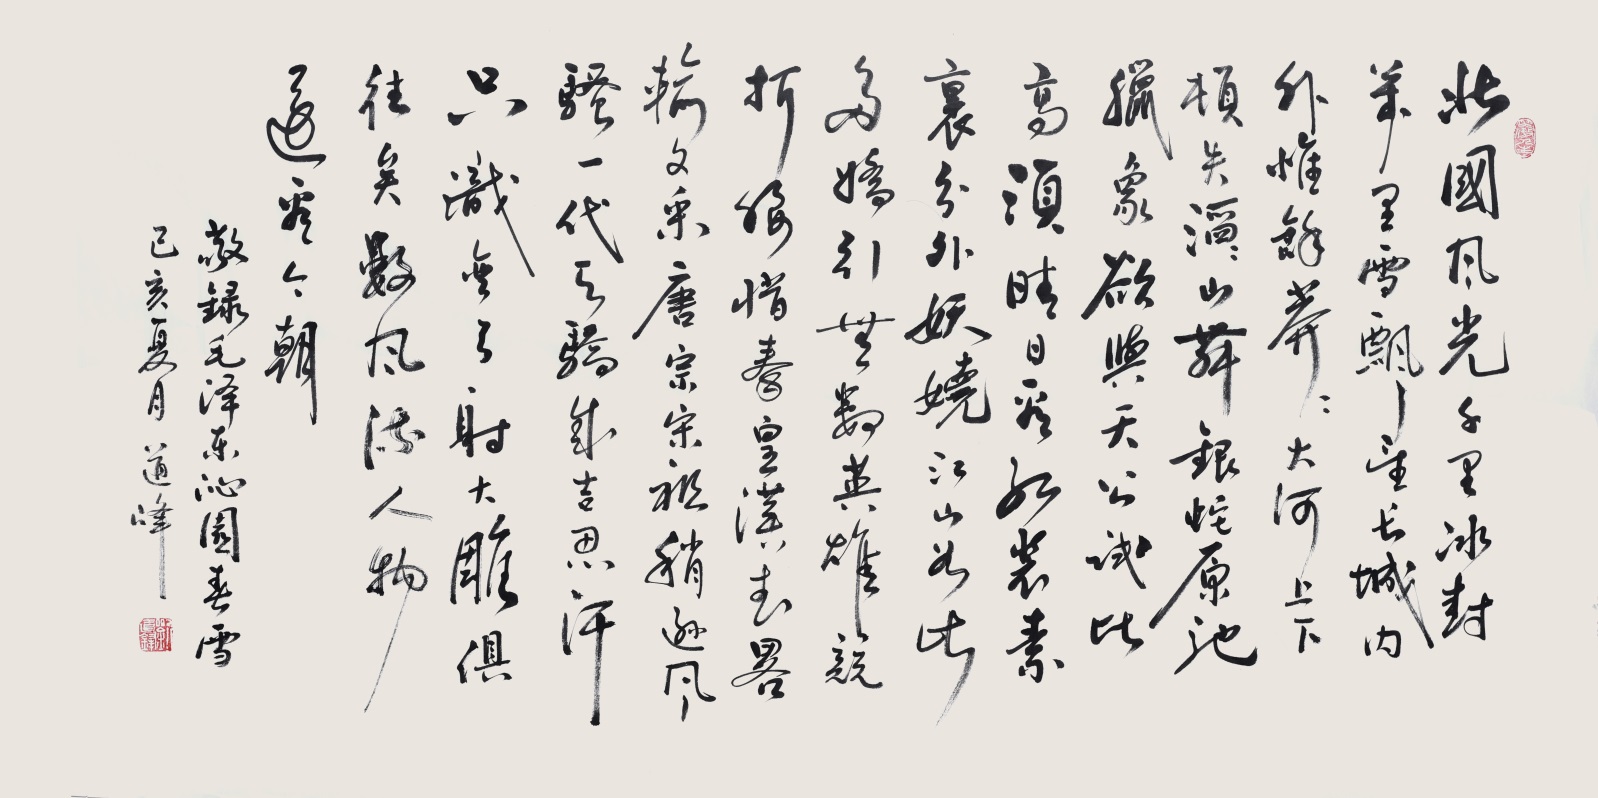 北國風光千里冰封
萬里雪飄望长城内
外惟餘莽莽大河上下
頓失滔滔山舞銀蛇原驰
臘象欲與天公試比
高須晴日看红装素
裹分外妖嬈江山如此
多嬌引無數英雄競
折腰惜秦皇漢武畧
輸文采唐宗宋祖稍逊風
騷一代天驕成吉思汗
只識彎弓射大雕俱
往矣數風流人物
還看今朝
敬録毛泽东沁園春雪
己亥夏月道峰